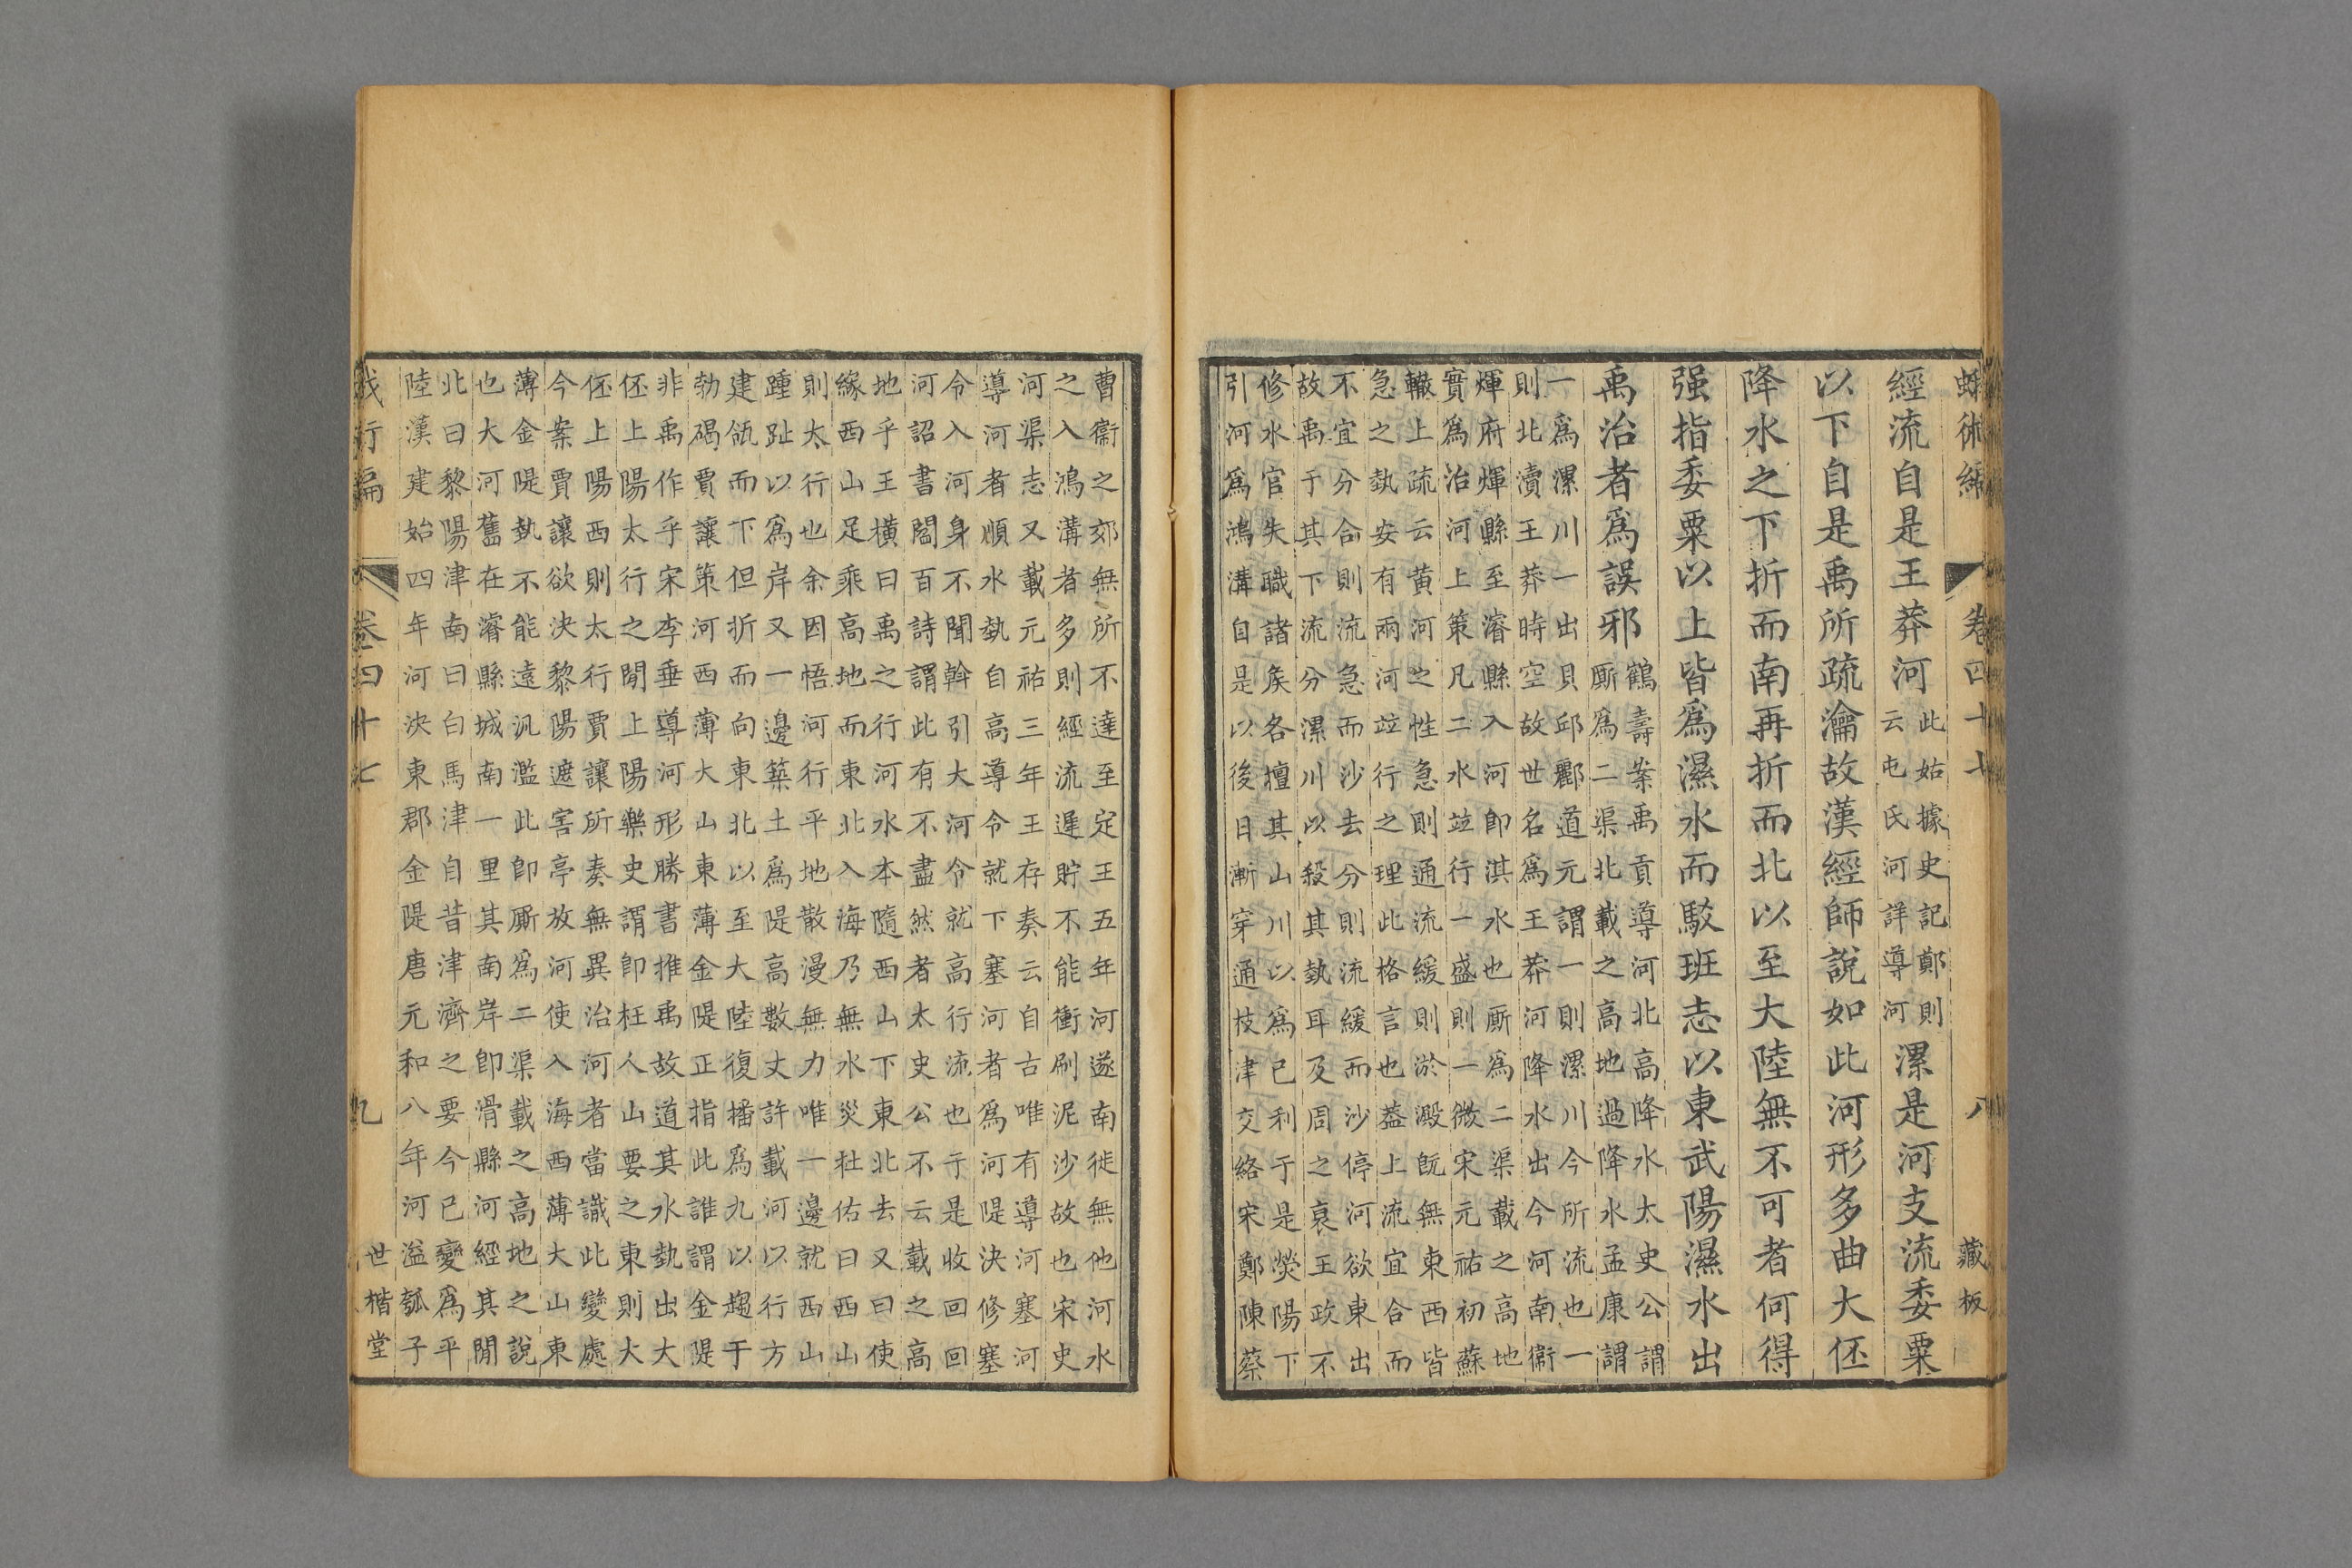 蛾術編 卷四十七 八 藏板
經流自是王莽河此姑據史記鄭則
云屯氏河詳導河漯是河支流委粟
以下自是禹所疏瀹故漢經師說如此河形多曲大伾
降水之下折而南再折而北以至大陸無不可者何得
强指委粟以上皆爲濕水而駁班志以東武陽濕水出
禹治者爲誤邪鶴壽案禹貢導河北高降水太史公謂
厮爲二渠北載之高地過降水孟康謂
一爲漯川一出貝邱酈道元謂一則漯川今所流也一
則北瀆王莽時空故世名爲王莽河降水出今河南衞
煇府煇縣至濬縣入河即淇水也厮爲二渠載之高地
實爲治河上策凡二水竝行一盛則一微宋元祐初蘇
轍上疏云黄河之性急則通流緩則淤澱旣無東西皆
急之埶安有兩河竝行之理此格言也葢上流宜合而
不宜分合則流急而沙去分則流緩而沙停河欲東出
故禹于其下流分漯川以殺其埶耳及周之衰王政不
修水官失職諸矦各擅其山川以爲己利于是熒陽下
引河爲鴻溝自是以後日漸穿通枝津交絡宋鄭陳蔡
曹衞之郊無所不達至定王五年河遂南徙無他河水
之入鴻溝者多則經流遲貯不能衝刷泥沙故也宋史
河渠志又載元祐三年王存奏云自古唯有導河塞河
導河者順水埶自高導令就下塞河者爲河隄決修塞
令入河身不聞斡引大河令就高行流也于是收回回
河詔書閻百詩謂此有不盡然者太史公不云載之高
地乎王横曰禹之行河水本隨西山下東北去又曰使
緣西山足乘高地而東北入海乃無水災杜佑曰西山
則太行也余因悟河行平地散漫無力唯一邊就西山
踵趾以爲岸又一邊築土爲隄高數丈許載河以行方
建瓴而下但折而向東北以至大陸復播爲九以趨于
勃碣賈讓策河西薄大山東薄金隄正指此誰謂金隄
非禹作乎宋李垂導河形勝書推禹故道其水埶出大
伾上陽太行之閒上陽樂史謂即枉人山要之東則大
伾上陽西則太行賈讓所奏無異治河者當識此變處
今案賈讓欲決黎陽遮害亭放河使入海西薄大山東
薄金隄埶不能遠汎濫此即厮爲二渠載之高地之說
也大河舊在濬縣城南一里其南岸即滑縣河經其閒
北曰黎陽津南曰白馬津自昔津濟之要今已變爲平
陸漢建始四年河決東郡金隄唐元和八年河溢瓠子
蛾術編 卷四十七 九 世楷堂